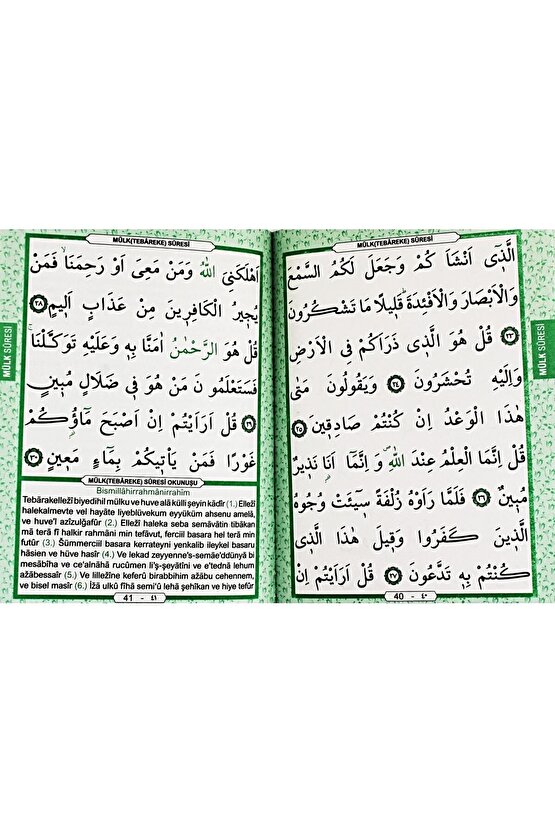 MÜLK(TEBÂREKE) SÛRESİ
MÜLK SÛRESİ
اَلَّذ۪ٓي اَنْشَاَ كُمْ وَجَعَلَ لَكُمُ السَّمْعَ
وَالْاَبْصَارَ وَالْاَفْئِدَةَ قَل۪يلًا مَا تَشْكُرُونَ
﴿٢٣﴾ قُلْ هُوَ الَّذ۪ي ذَرَاَكُمْ فِي الْاَرْضِ
وَاِلَيْهِ تُحْشَرُونَ ﴿٢٤﴾ وَيَقُولُونَ مَتٰى
هٰذَا الْوَعْدُ اِنْ كُنْتُمْ صَادِق۪ينَ ﴿٢٥﴾
قُلْ اِنَّمَا الْعِلْمُ عِنْدَ اللّٰهِ وَ اِنَّمَٓا اَنَا نَذ۪يرٌ
مُب۪ينٌ ﴿٢٦﴾ فَلَمَّا رَاَوْهُ زُلْفَةً س۪ٓيـَٔتْ وُجُوهُ
الَّذ۪ينَ كَفَرُوا وَق۪يلَ هٰذَا الَّذ۪ي
كُنْتُمْ بِه۪ تَدَّعُونَ ﴿٢٧﴾ قُلْ اَرَاَيْتُمْ اِنْ
40 - ٤٠
MÜLK(TEBÂREKE) SÛRESİ
MÜLK SÛRESİ
اَهْلَكَنِيَ اللّٰهُ وَمَنْ مَعِيَ اَوْ رَحِمَنَاۙ فَمَنْ
يُج۪يرُ الْكَافِر۪ينَ مِنْ عَذَابٍ اَل۪يمٍ ﴿٢٨﴾
قُلْ هُوَ الرَّحْمٰنُ اٰمَنَّا بِه۪ وَعَلَيْهِ تَوَكَّلْنَاۚ
فَسَتَعْلَمُونَ مَنْ هُوَ ف۪ي ضَلَالٍ مُب۪ينٍ
﴿٢٩﴾ قُلْ اَرَاَيْتُمْ اِنْ اَصْبَحَ مَٓاؤُكُمْ
غَوْرًا فَمَنْ يَأْت۪يكُمْ بِمَٓاءٍ مَع۪ينٍ ﴿٣٠﴾
MÜLK(TEBÂREKE) SÛRESİ OKUNUŞU
Bismillâhirrahmânirrahîm
Tebârakellezî biyedihil mülku ve huve alâ külli şeyin kâdîr (1.) Ellezî
halekalmevte vel hayâte liyeblüvekum eyyüküm ahsenu amelâ,
ve huve'l azîzulğafûr (2.) Ellezî haleka seba semâvâtin tibâkan
mâ terâ fî halkir rahmâni min tefâvut, ferciil basara hel terâ min
futûr (3.) Sümmerciil basara kerrateyni yenkalib ileykel basaru
hâsien ve hüve hasîr (4.) Ve lekad zeyyenne's-semâe'ddünyâ bi
mesâbîha ve ce'alnâhâ rucûmen li'ş-şeyâtîni ve e'tednâ lehum
ażâbessaîr (5.) Ve lillezîne keferû birabbihim ażâbu cehennem,
ve bisel masîr (6.) İżâ ulkû fîhâ semi'û lehâ şehîkan ve hiye tefûr
41 - ٤١